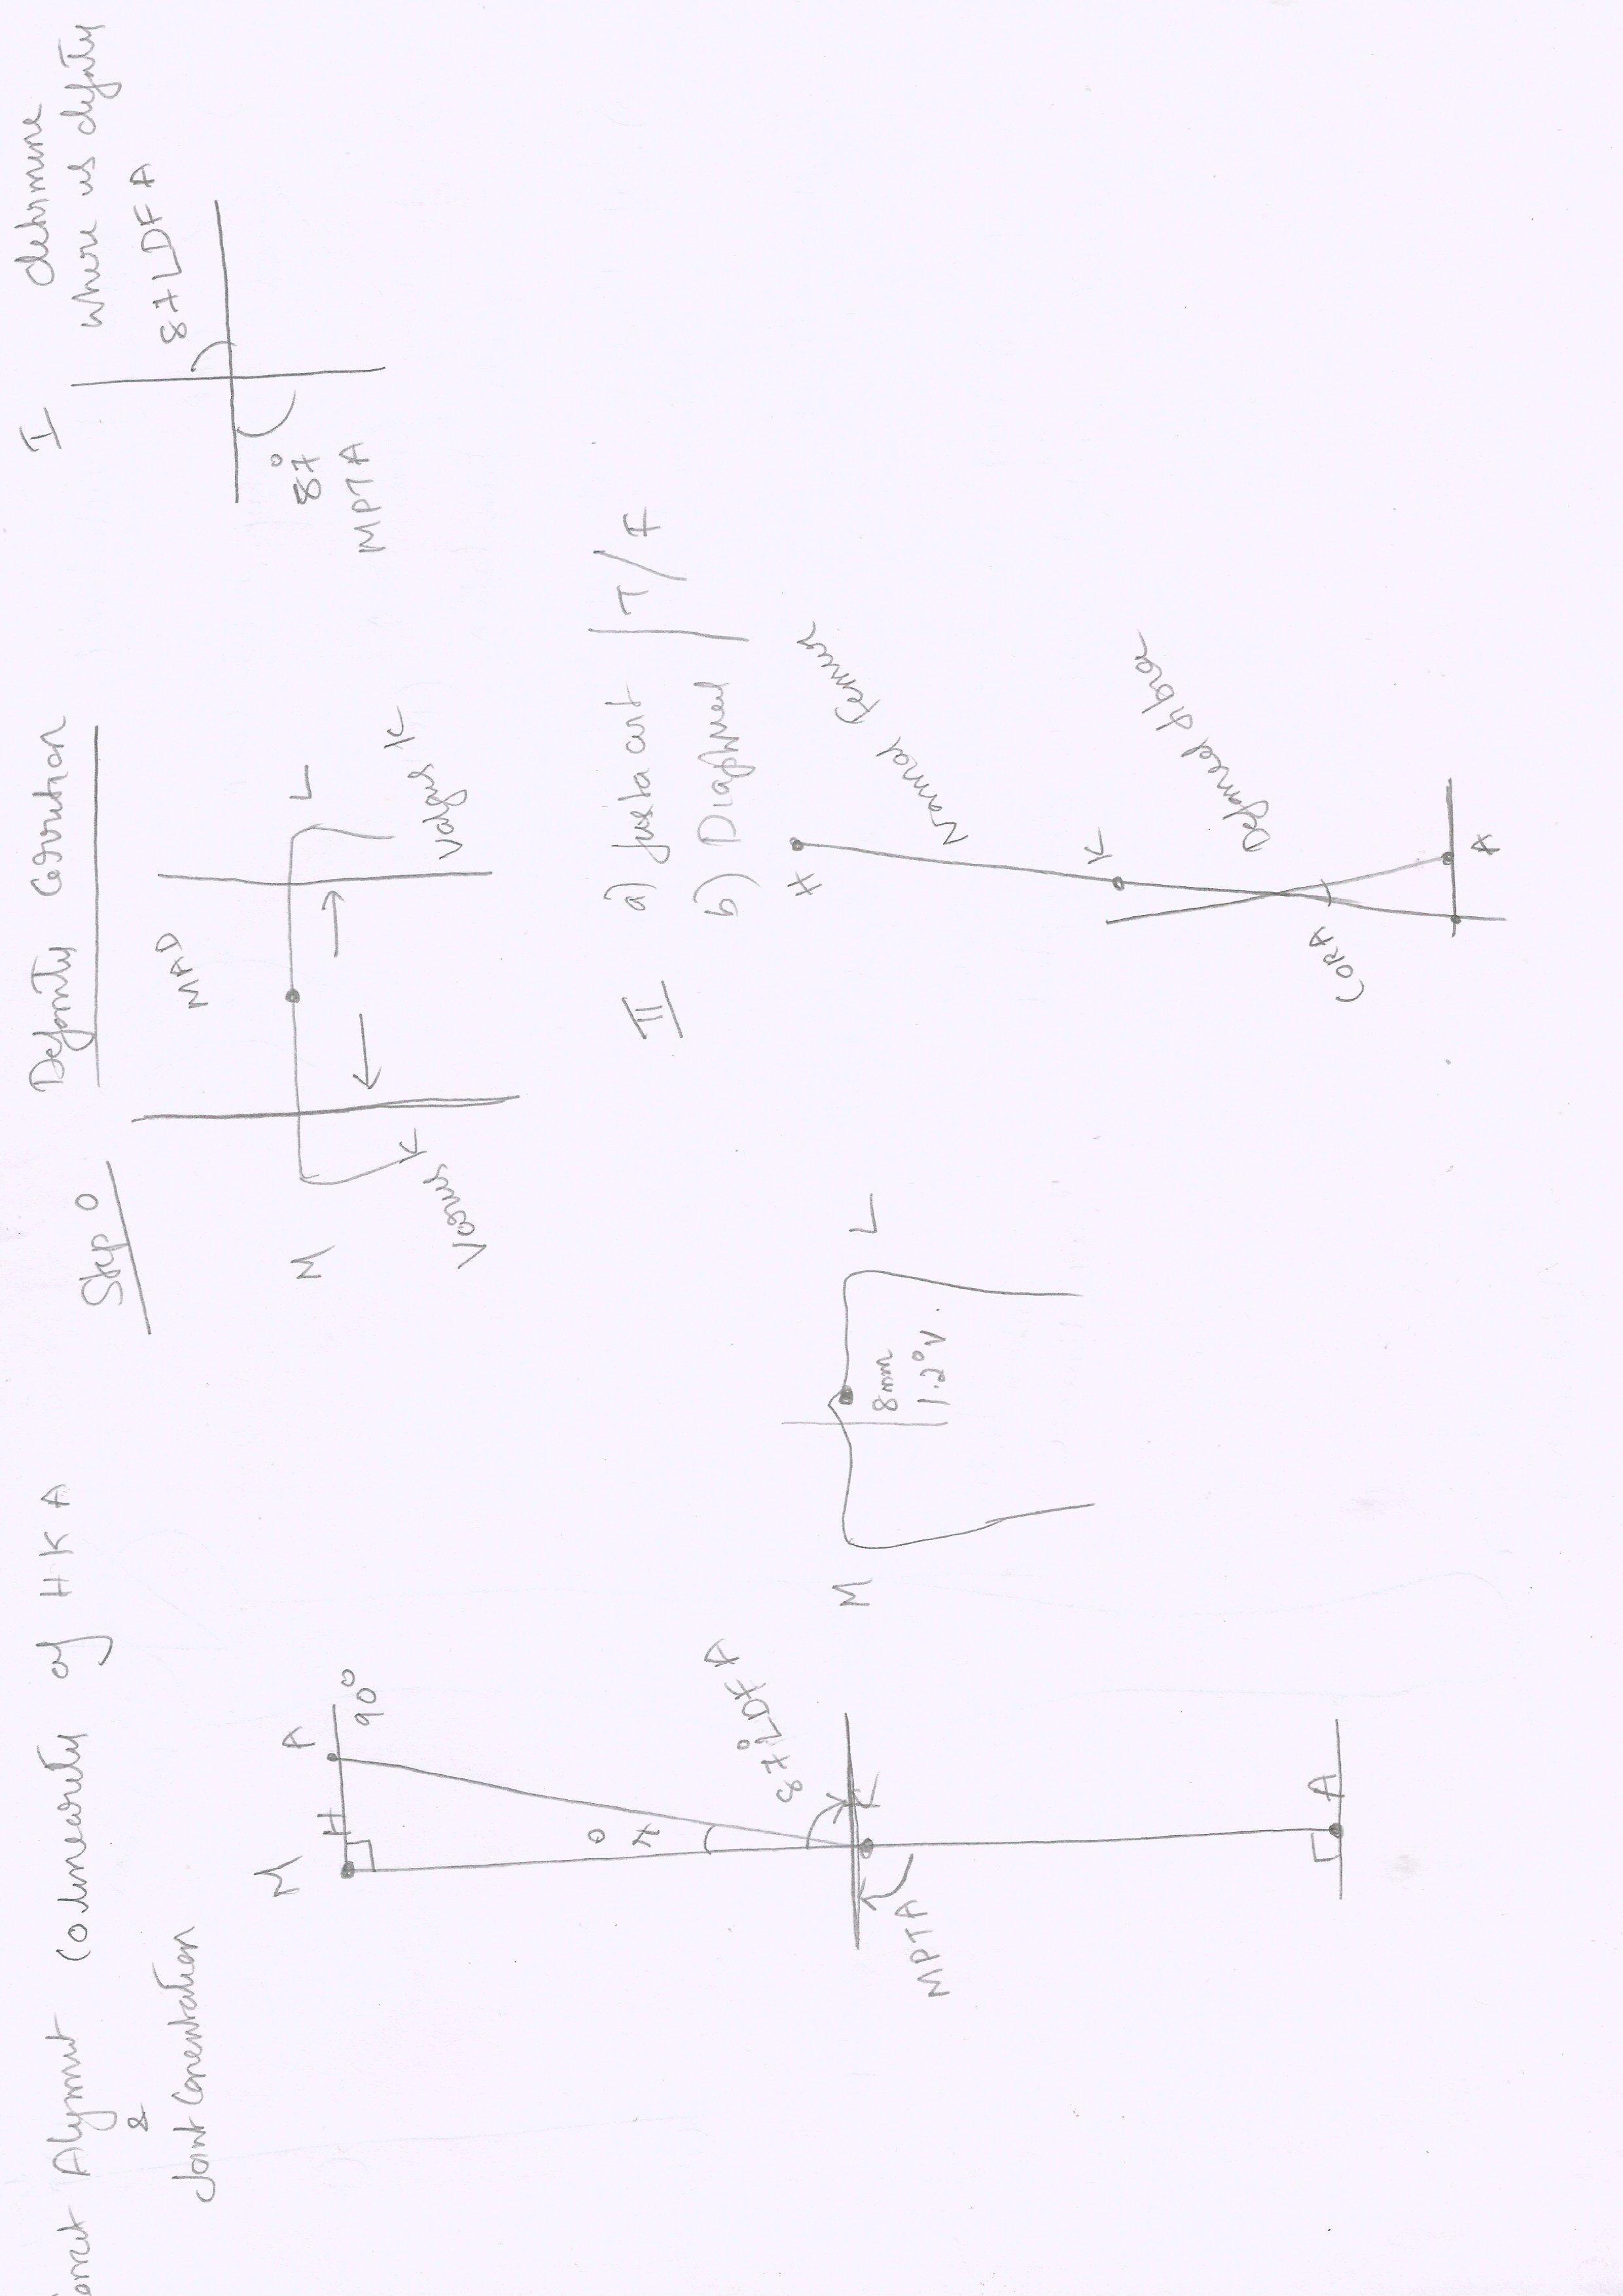 Alignmut Colinearity of H K A
&
Joint Orientation
M
A
H
90°
7°
87° LDFA
K
MPTA
A
M
L
8mm
1.2° V.
Deformity Correction
Step 0
MAD
M
L
Varus K
Valgus K
I determine
where is defoty
87 LDFA
87°
MPTA
II a) Juxta art
b) Diaphyseal
T/F
H
Normal Femur
K
Deformed tibia
CORA
A